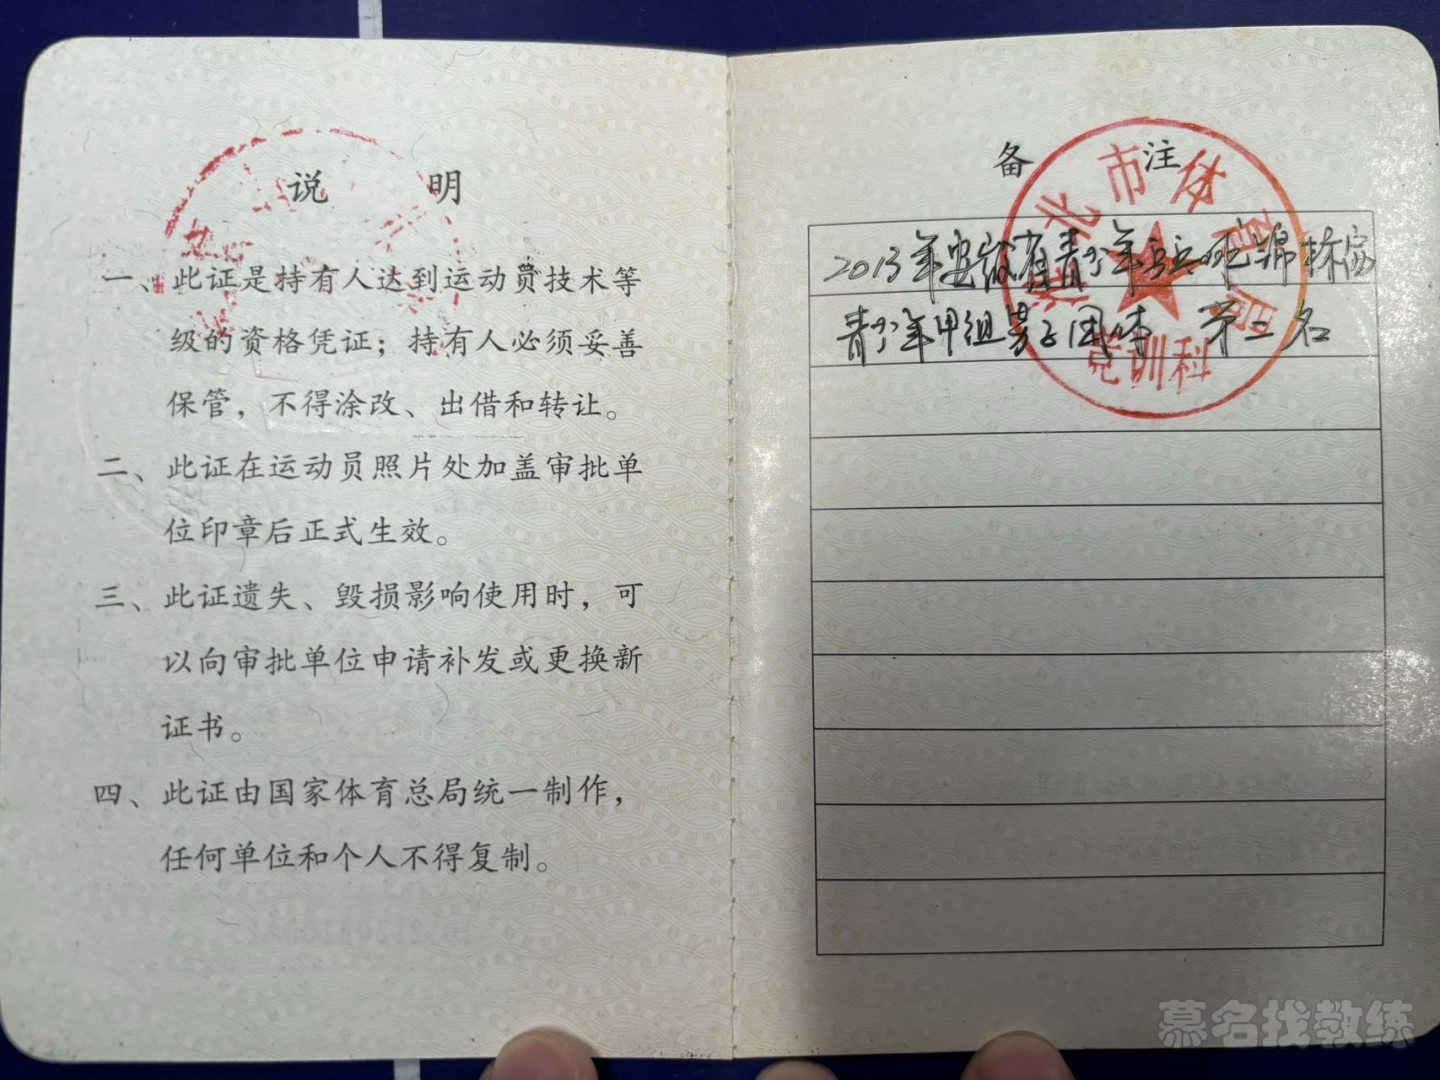 说 明
一、此证是持有人达到运动员技术等
级的资格凭证；持有人必须妥善
保管，不得涂改、出借和转让。
二、此证在运动员照片处加盖审批单
位印章后正式生效。
三、此证遗失、毁损影响使用时，可
以向审批单位申请补发或更换新
证书。
四、此证由国家体育总局统一制作，
任何单位和个人不得复制。
备 注
2013年安徽省青少年乒乓球锦标赛
青少年甲组男子团体 第二名
北市体育局
竞训科
慕名找教练